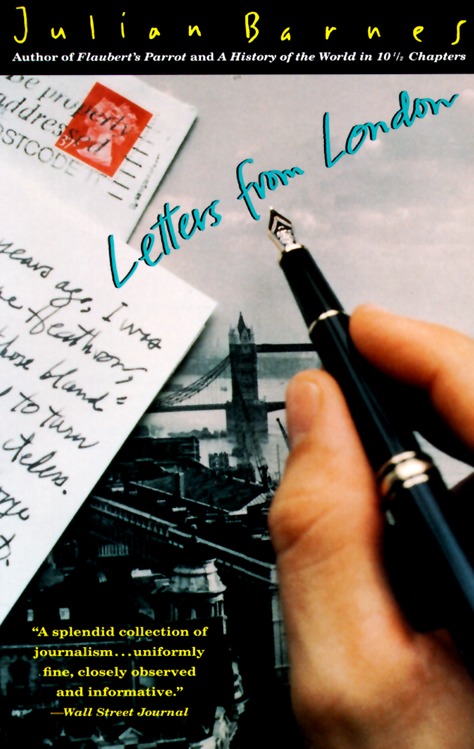 Julian Barnes
Author of Flaubert's Parrot and A History of the World in 10 1/2 Chapters
be properly
addressed
POSTCODE
37
Letters from London
years ago, I was
Heathrow,
those bland=
to turn
“A splendid collection of
journalism...uniformly
fine, closely observed
and informative.”
—Wall Street Journal